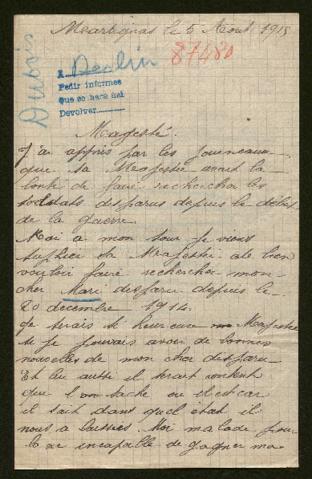 Martignas le 5 Aout 1915
Dubois
A Berlin
87480
Pedir informes
Que se hace asi
Devolver
Magesté.
J'ai appris par les journeaux
que sa Magestie avait la
bonté de faire rechercher les
soldats disparus depuis le début
de la guerre
Moi a mon tour je viens
suplier sa Magestie de bien
vouloir faire rechercher mon
cher Mari disparu depuis le
20 decembre 1914.
Je serais si heureuse Magestie
si je pouvais avoir de bonnes
nouvelles de mon cher disparu
Et lui aussi il serait content
que l'on sache ou il est car
il sait dans quel état il
nous a laissées. Moi malade pour
incapable de gagner ma